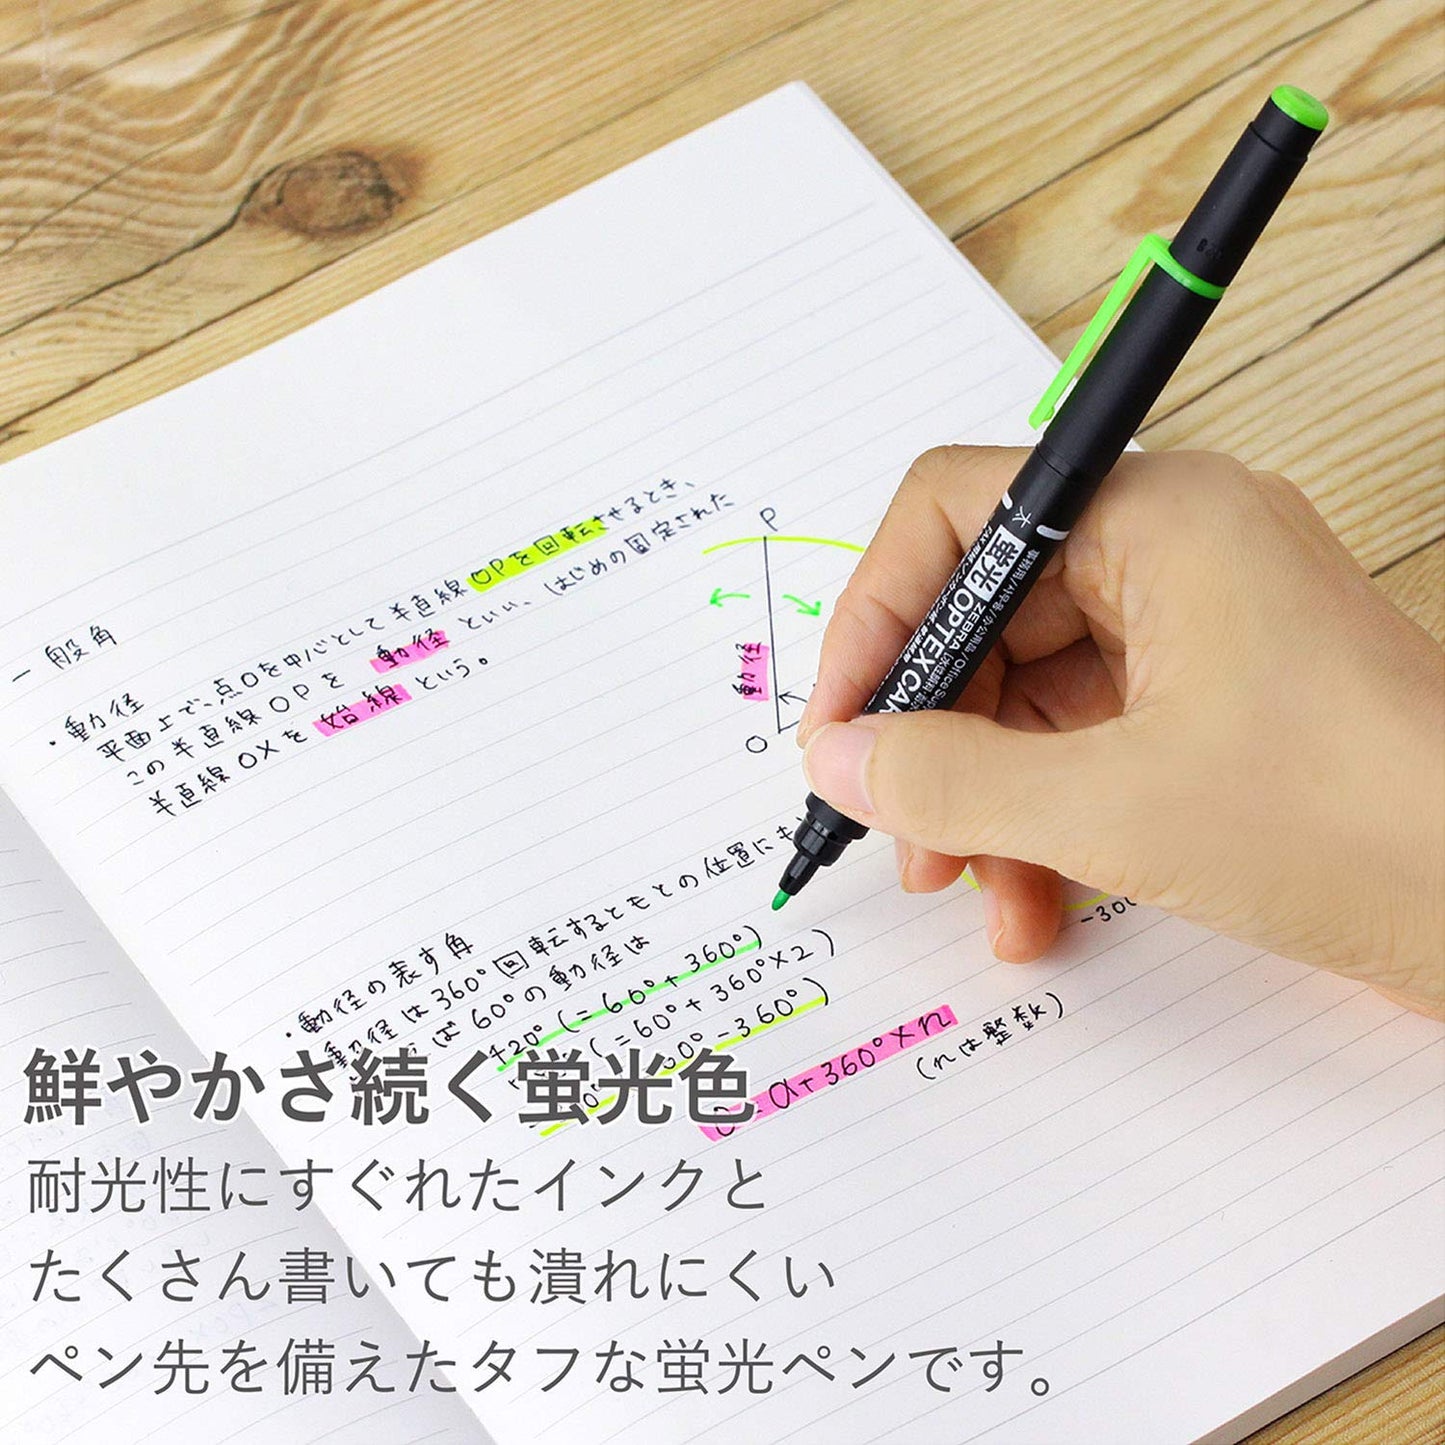 一般角
・動径
平面上で、点Oを中心として半直線OPを回転させるとき、
この半直線OPを動径といい、はじめの固定された
半直線OXを始線という。
P
動径
O
・動径の表す角
動径は360°回転するともとの位置にも
ば60°の動径は
420°(=60°+360°)
(=60°+360°×2)
-360°)
-300
α+360°×n
(nは整数)
太
蛍光
ZEBRA
OPTEX CAR
事務用/사무용/办公用品/Office Su
鮮やかさ続く蛍光色
耐光性にすぐれたインクと
たくさん書いても潰れにくい
ペン先を備えたタフな蛍光ペンです。